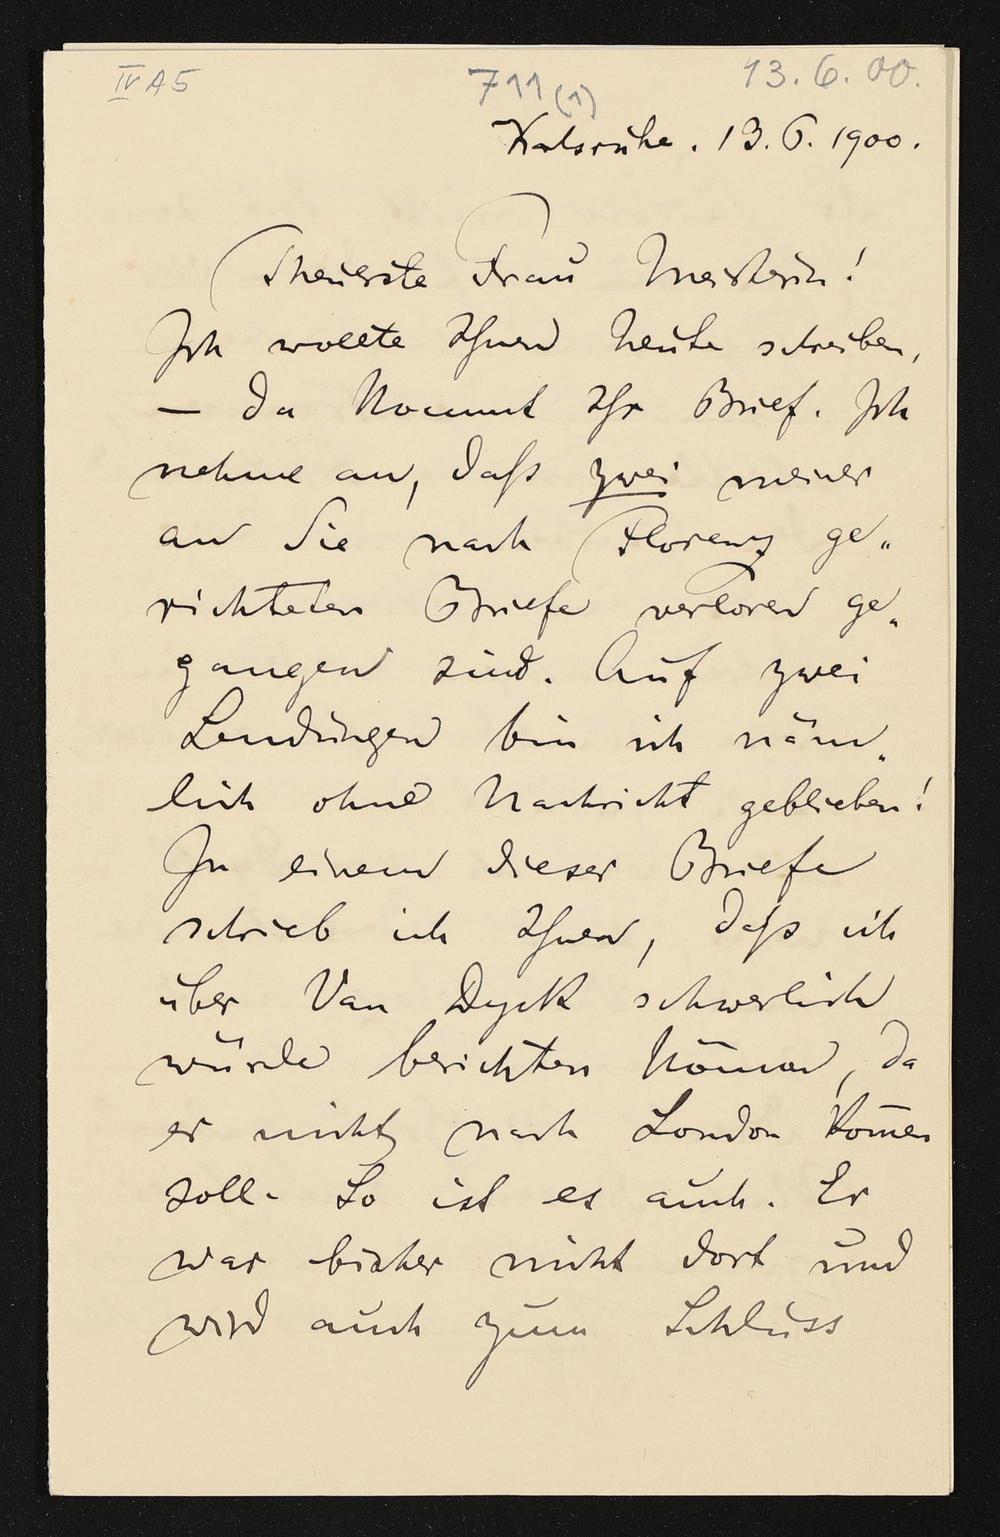 IV A 5
711 (1)
13. 6. 00.
Karlsruhe. 13. 6. 1900.
Theuerste Frau Meisterin!
Ich wollte Ihnen heute schreiben,
— da kommt Ihr Brief. Ich
nehme an, daß zwei meiner
an Sie nach Florenz ge„
richteten Briefe verloren ge„
gangen sind. Auf zwei
Sendungen bin ich näm„
lich ohne Nachricht geblieben!
In einem dieser Briefe
schrieb ich Ihnen, daß ich
über Van Dyck schwerlich
würde berichten können, da
er nicht nach London kom̄en
soll. So ist es auch. Er
war bisher nicht dort und
wird auch zum Schluss